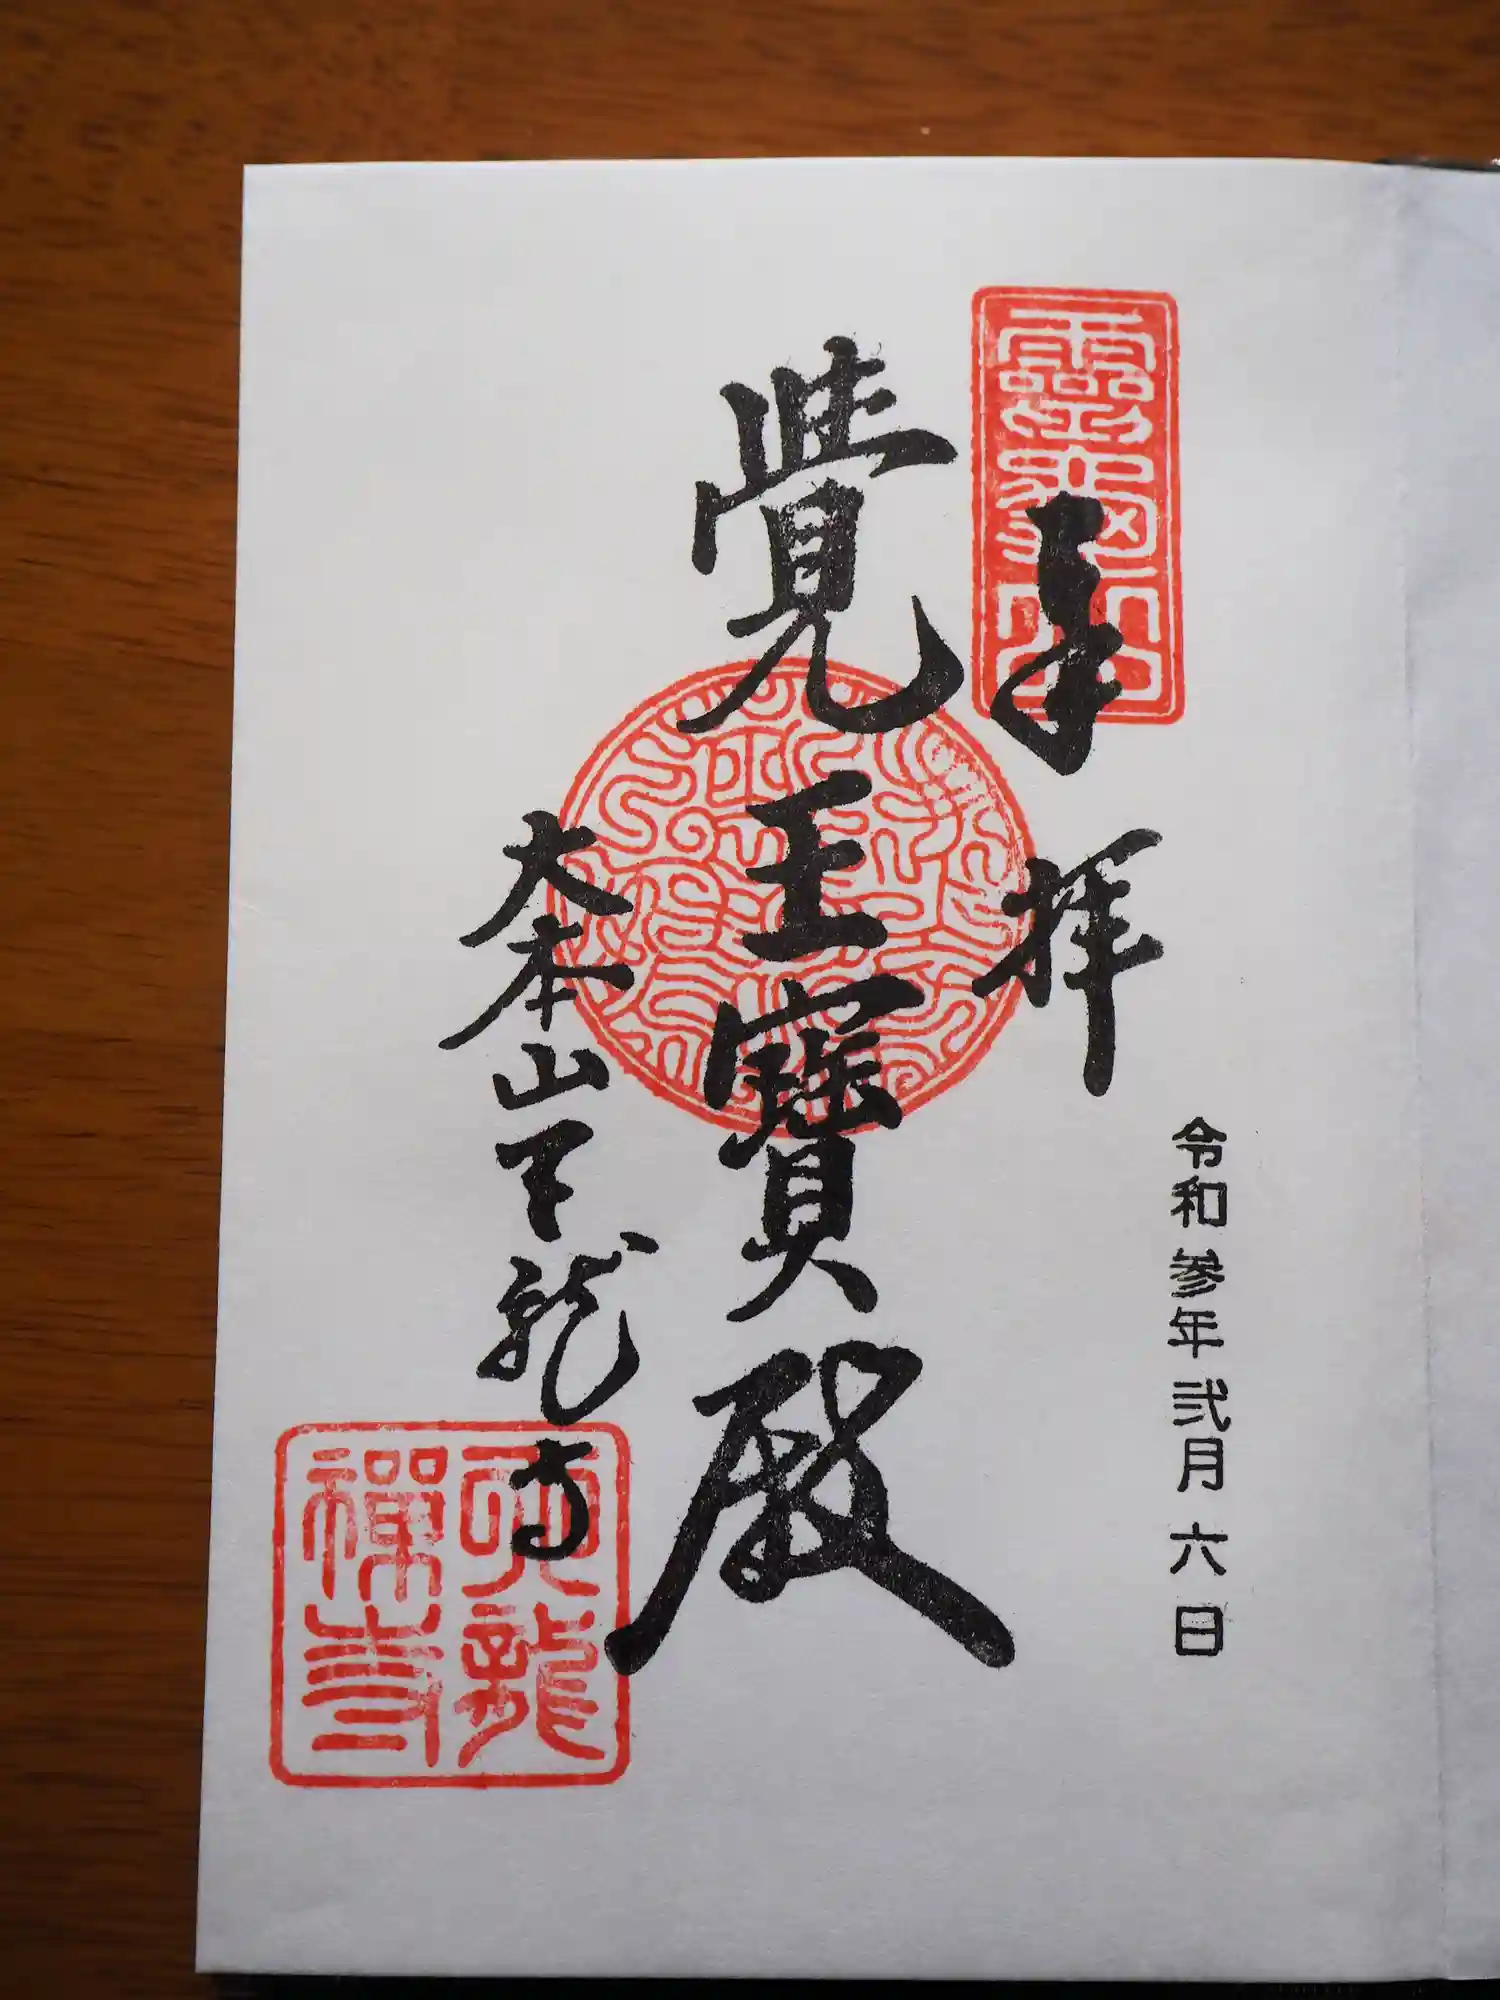 令和参年弐月六日
靈龜山
奉拝
覺王寶殿
大本山天龍寺
天龍
禪寺